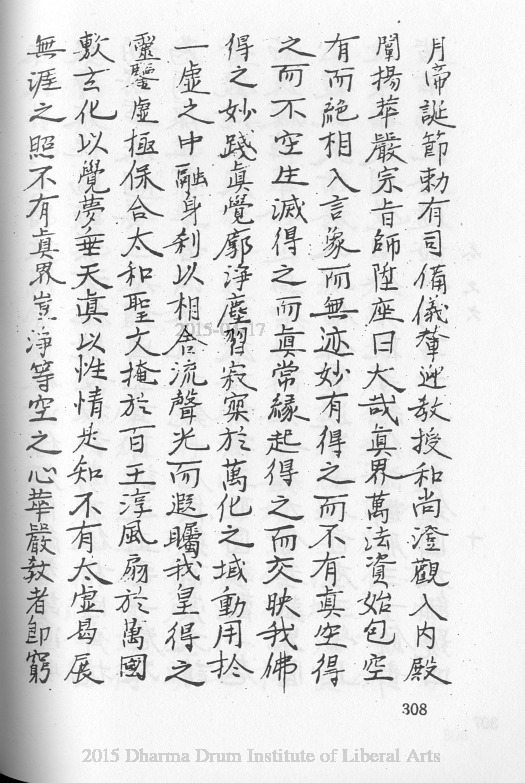 月帝誕節勅有司備儀輦迎教授和尚澄觀入內殿
闡揚華嚴宗旨師陞座曰大哉眞界萬法資始包空
有而絶相入言象而無迹妙有得之而不有眞空得
之而不空生滅得之而眞常緣起得之而交映我佛
得之妙踐眞覺廓淨塵習寂寞於萬化之域動用於
一虛之中融身刹以相含流聲光而遐矚我皇得之
靈鑒虛極保合太和聖文掩於百王淳風扇於萬國
敷玄化以覺夢垂天眞以性情是知不有太虛曷展
無涯之照不有眞界豈淨等空之心華嚴敎者卽窮
308
2015-07-17
2015 Dharma Drum Institute of Liberal Arts